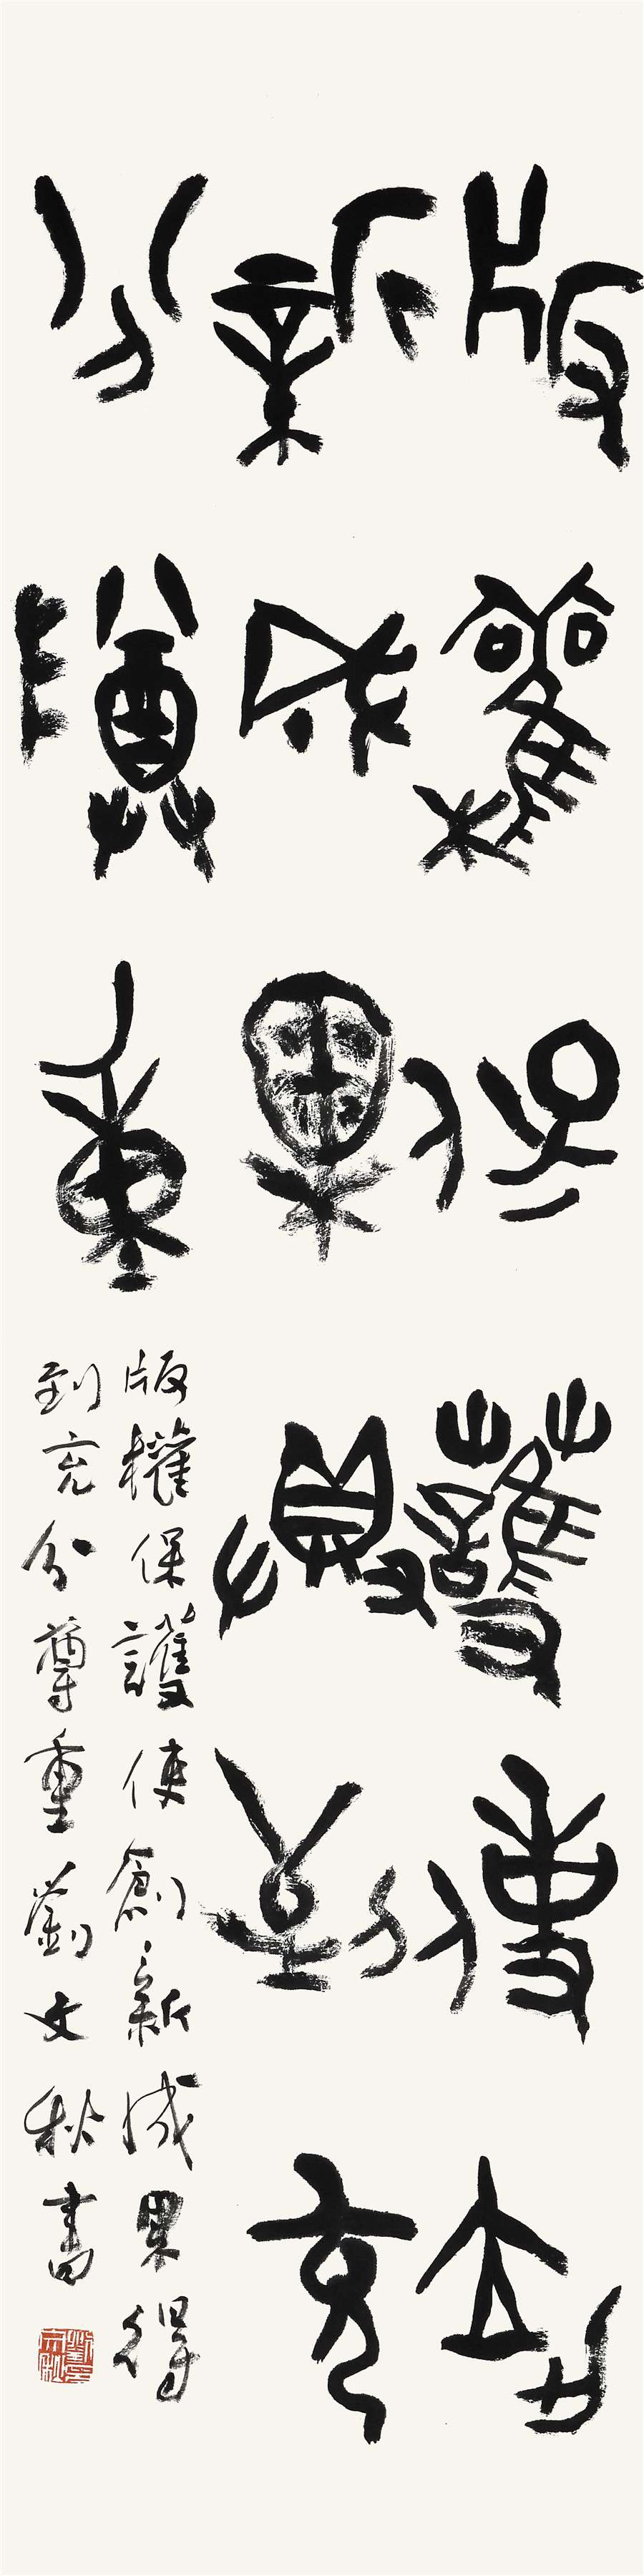 版權保護使創
新成果得到充
分尊重
版權保護使創新成果得
到充分尊重劉文秋書